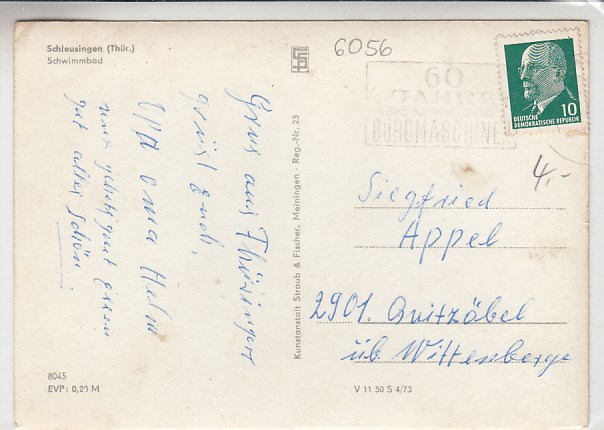 Schleusingen (Thür.)
Schwimmbad
6056
60
JAHRE
BÜROMASCHINEN
10
DEUTSCHE
DEMOKRATISCHE REPUBLIK
4,-
Gruss aus Thüringen
grüsst Euch,
Opa Oma Helm
gut alles Schön
Siegfried
Appel
2901. Quitzöbel
üb. Wittenberge
Kunstanstalt Straub & Fischer, Meiningen - Reg.-Nr. 23
8045
EVP: 0,20 M
V 11 50 S 4/73